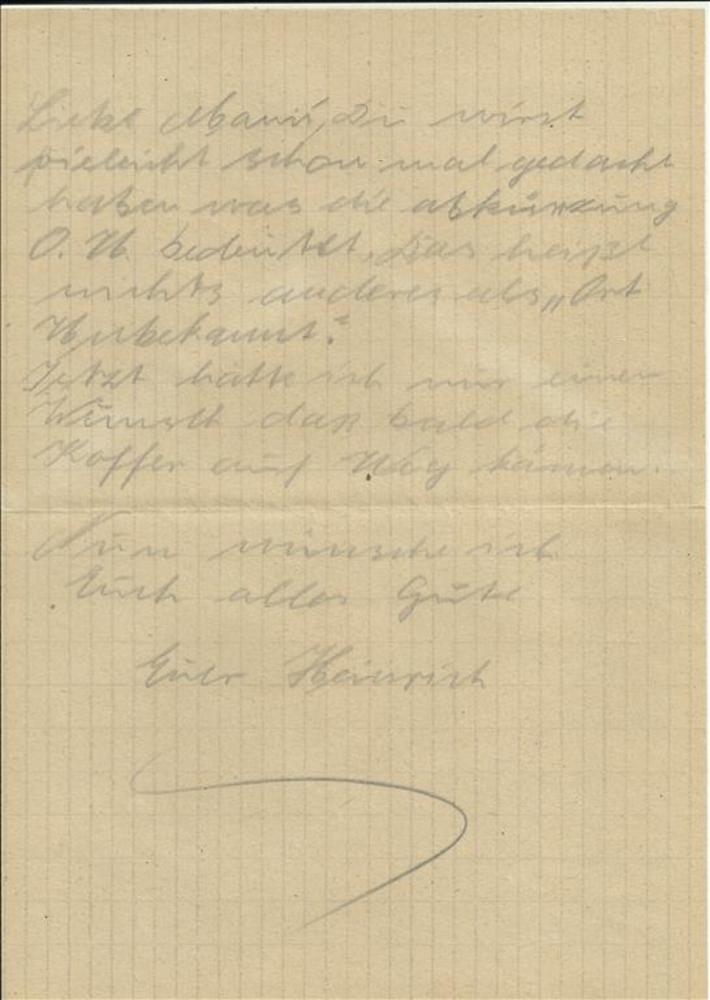 Liebe Mami, Du wirst
vieleicht schon mal gedacht
haben was die abkürzung
O. U. bedeutet, das heißt
nichts anderes als „Ort
Unbekannt."
Jetzt hätte ich nur einen
Wunsch das bald die
Koffer auf Weg kämen.
Nun wünsche ich
Euch alles Gute
Euer Heinrich